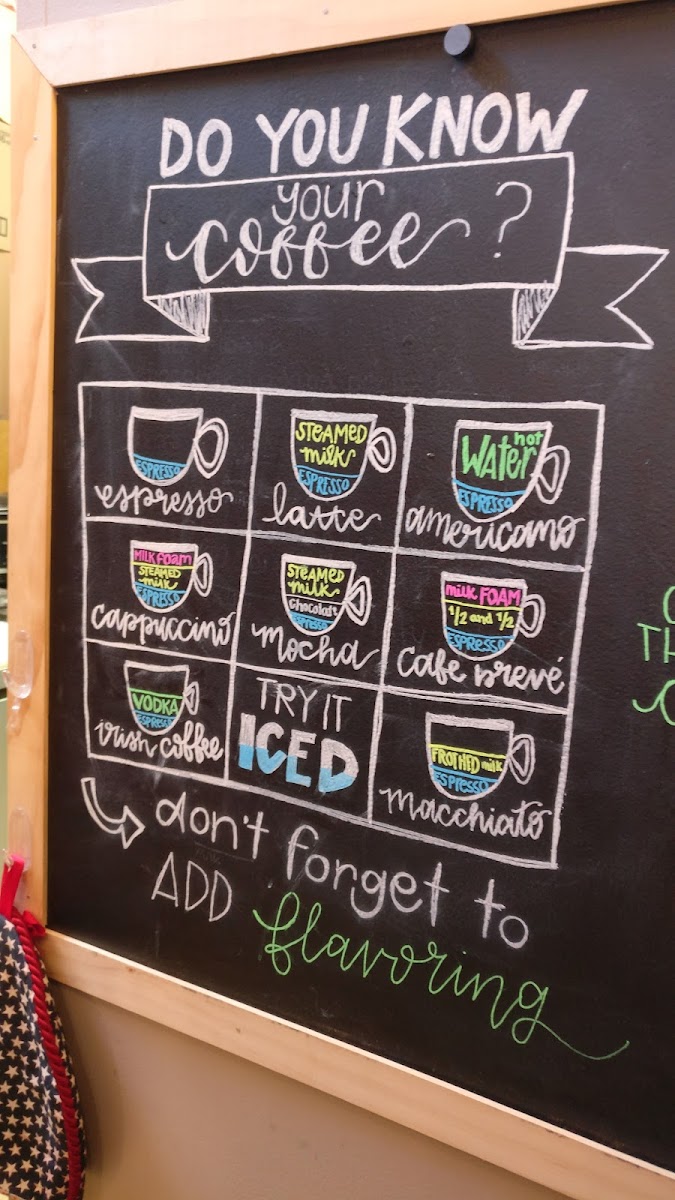 DO YOU KNOW
your
coffee ?
ESPRESSO
espresso
STEAMED
milk
ESPRESSO
latte
hot
WATER
ESPRESSO
americano
MILK FOAM
STEAMED
milk
ESPRESSO
cappuccino
STEAMED
milk
chocolate
ESPRESSO
mocha
milk FOAM
1/2 and 1/2
ESPRESSO
cafe brevé
VODKA
ESPRESSO
irish coffee
TRY IT
ICED
FROTHED milk
ESPRESSO
macchiato
don't forget to
ADD
flavoring